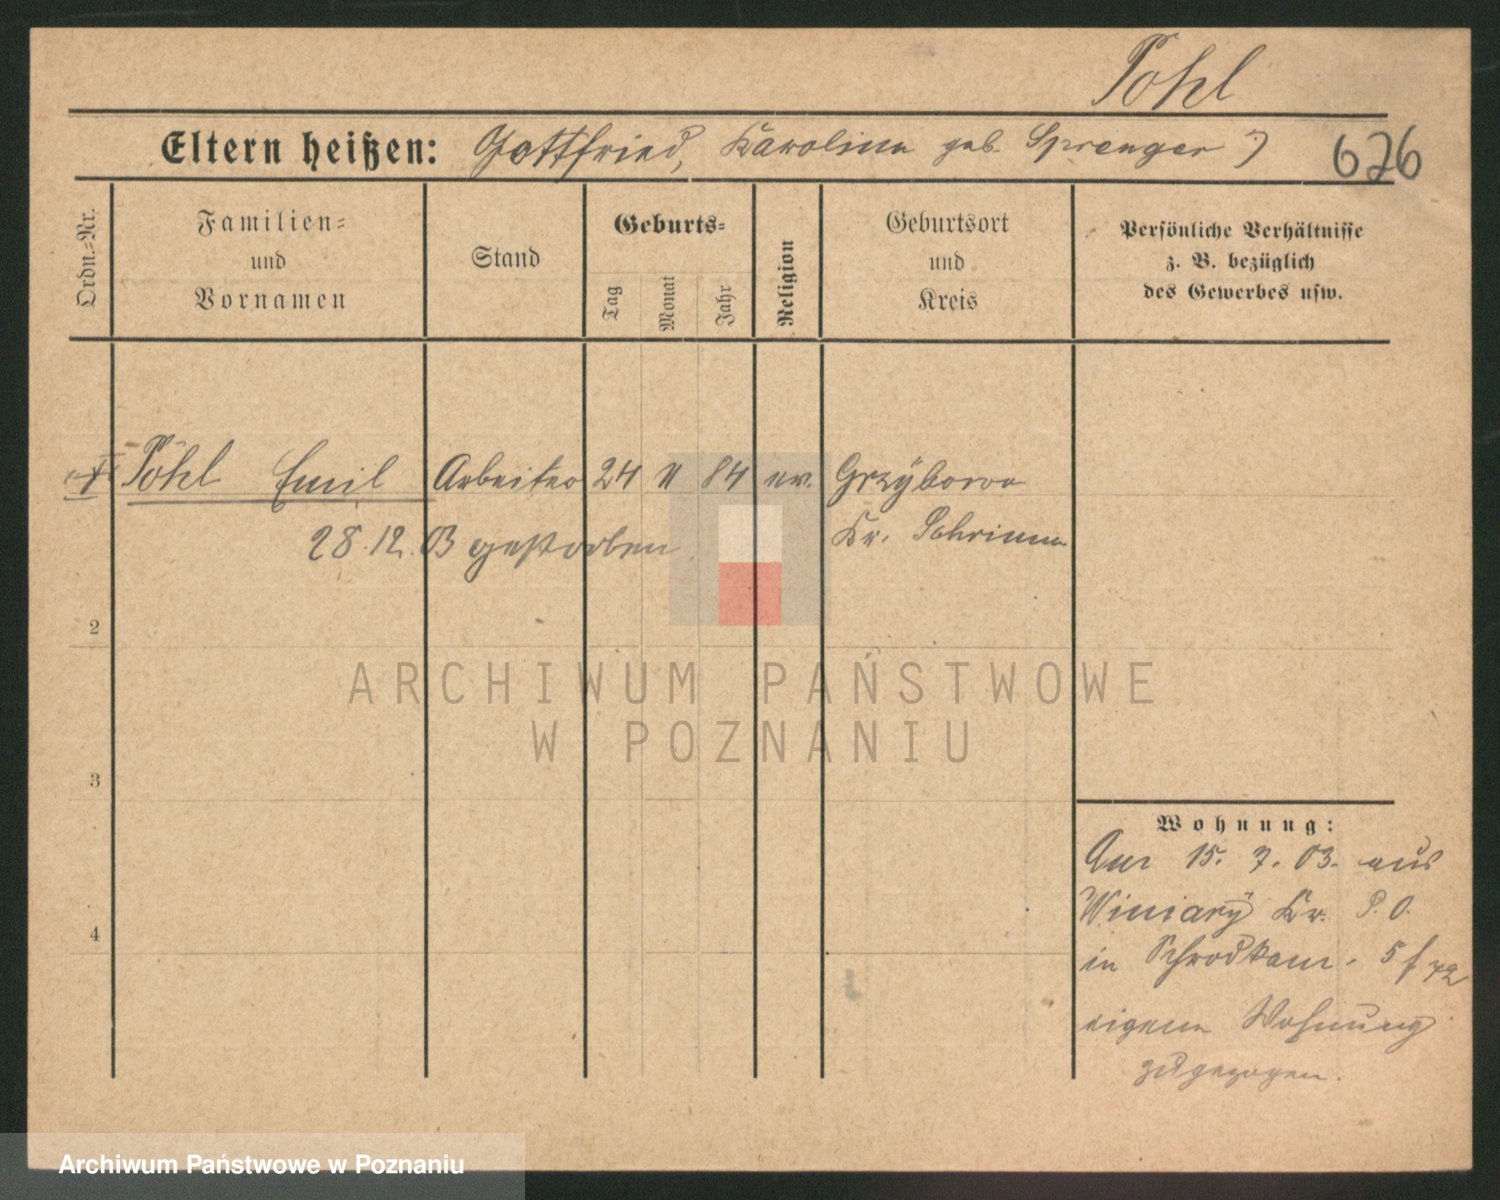 Pohl
Eltern heißen: Gottfried, Karoline geb. Sprenger
626
Ordn.=Nr.
Familien=
und
Vornamen
Stand
Geburts=
Tag
Monat
Jahr
Religion
Geburtsort
und
Kreis
Persönliche Verhältnisse
z. B. bezüglich
des Gewerbes usw.
Pohl Emil Arbeiter 24 11 84 ev. Grzybowo
28.12.03 gestorben Kr. Schrimm
2
3
4
Wohnung:
Am 15. 7. 03. aus
Winiary Kr. P. O.
in Schrodkam. 5
eigene Wohnung
zugezogen.
ARCHIWUM PAŃSTWOWE
W POZNANIU
Archiwum Państwowe w Poznaniu